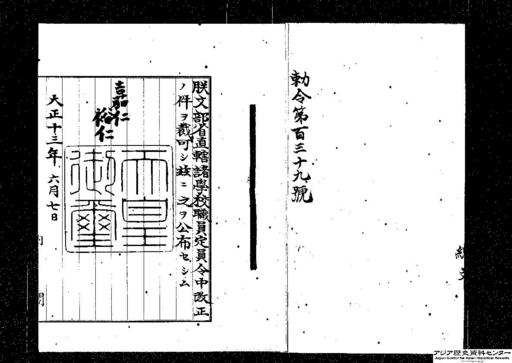 勅令第百三十九號
朕文部省直轄諸學校職員定員令中改正
ノ件ヲ裁可シ玆ニ之ヲ公布セシム
嘉仁
裕仁
天皇
御璽
大正十三年六月七日
内
閣
アジア歴史資料センター
Japan Center for Asian Historical Records